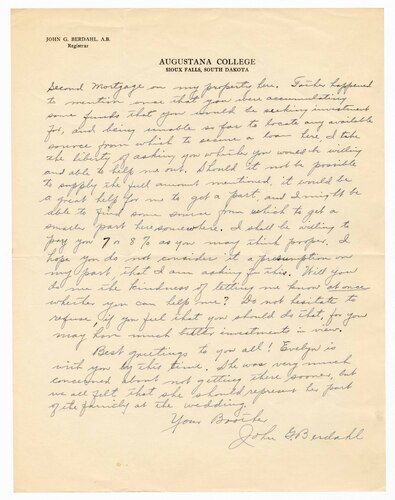 JOHN G. BERDAHL, A.B.
Registrar
AUGUSTANA COLLEGE
SIOUX FALLS, SOUTH DAKOTA
Second Mortgage on my property here. Father happened
to mention once that you were accumulating
some funds that you would be seeking investment
for, and being unable so far to locate any available
source from which to secure a loan here I take
the liberty of asking you whether you would be willing
and able to help me out. Should it not be possible
to supply the full amount mentioned, it would be
a great help for me to get a part, and I might be
able to find some source from which to get a
smaller part here somewhere. I shall be willing to
pay you 7 or 8% as you may think proper. I
hope you do not consider it a presumption on
my part, that I am asking for this. Will you
do me the kindness of letting me know at once
whether you can help me? Do not hesitate to
refuse, if you feel that you should do that, for you
may have much better investments in view.
Best greetings to you all! Evelyn is
with you by this time. She was very much
concerned about not getting there sooner, but
we all felt that she should represent her part
of the family at the wedding.
Your Brother
John G Berdahl